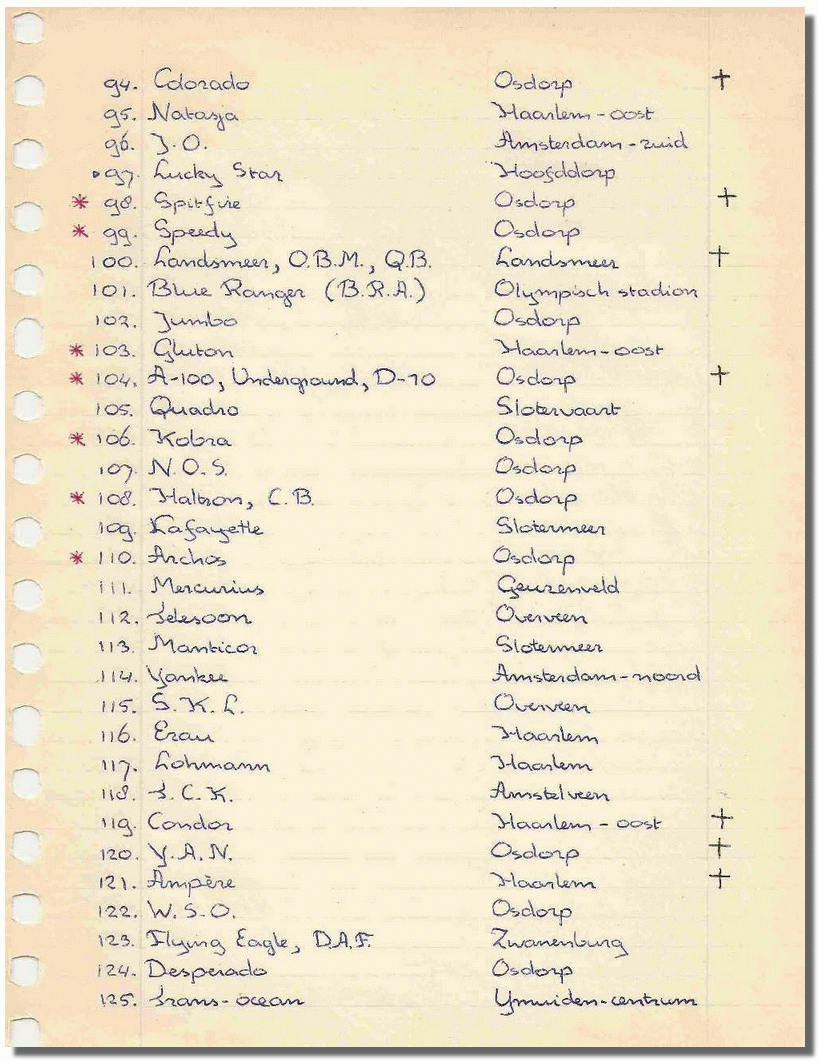 94. Colorado Osdorp †
95. Natasja Haarlem-oost
96. J.O. Amsterdam-zuid
97. Lucky Star Hoofddorp
* 98. Spitfire Osdorp †
* 99. Speedy Osdorp
100. Landsmeer, O.B.M., Q.B. Landsmeer †
101. Blue Ranger (B.R.A.) Olympisch stadion
102. Jumbo Osdorp
* 103. Gluton Haarlem-oost
* 104. A-100, Underground, D-70 Osdorp †
105. Quadro Slotervaart
* 106. Kobra Osdorp
107. N.O.S. Osdorp
* 108. Haltron, C.B. Osdorp
109. Lafayette Slotermeer
* 110. Archos Osdorp
111. Mercurius Geuzenveld
112. Telesoon Overveen
113. Manticor Slotermeer
114. Yankee Amsterdam-noord
115. S.K.L. Overveen
116. Erau Haarlem
117. Lohmann Haarlem
118. T.C.K. Amstelveen
119. Condor Haarlem-oost †
120. Y.A.N. Osdorp †
121. Ampère Haarlem †
122. W.S.O. Osdorp
123. Flying Eagle, D.A.F. Zwanenburg
124. Desperado Osdorp
125. Trans-ocean Ymuiden-centrum